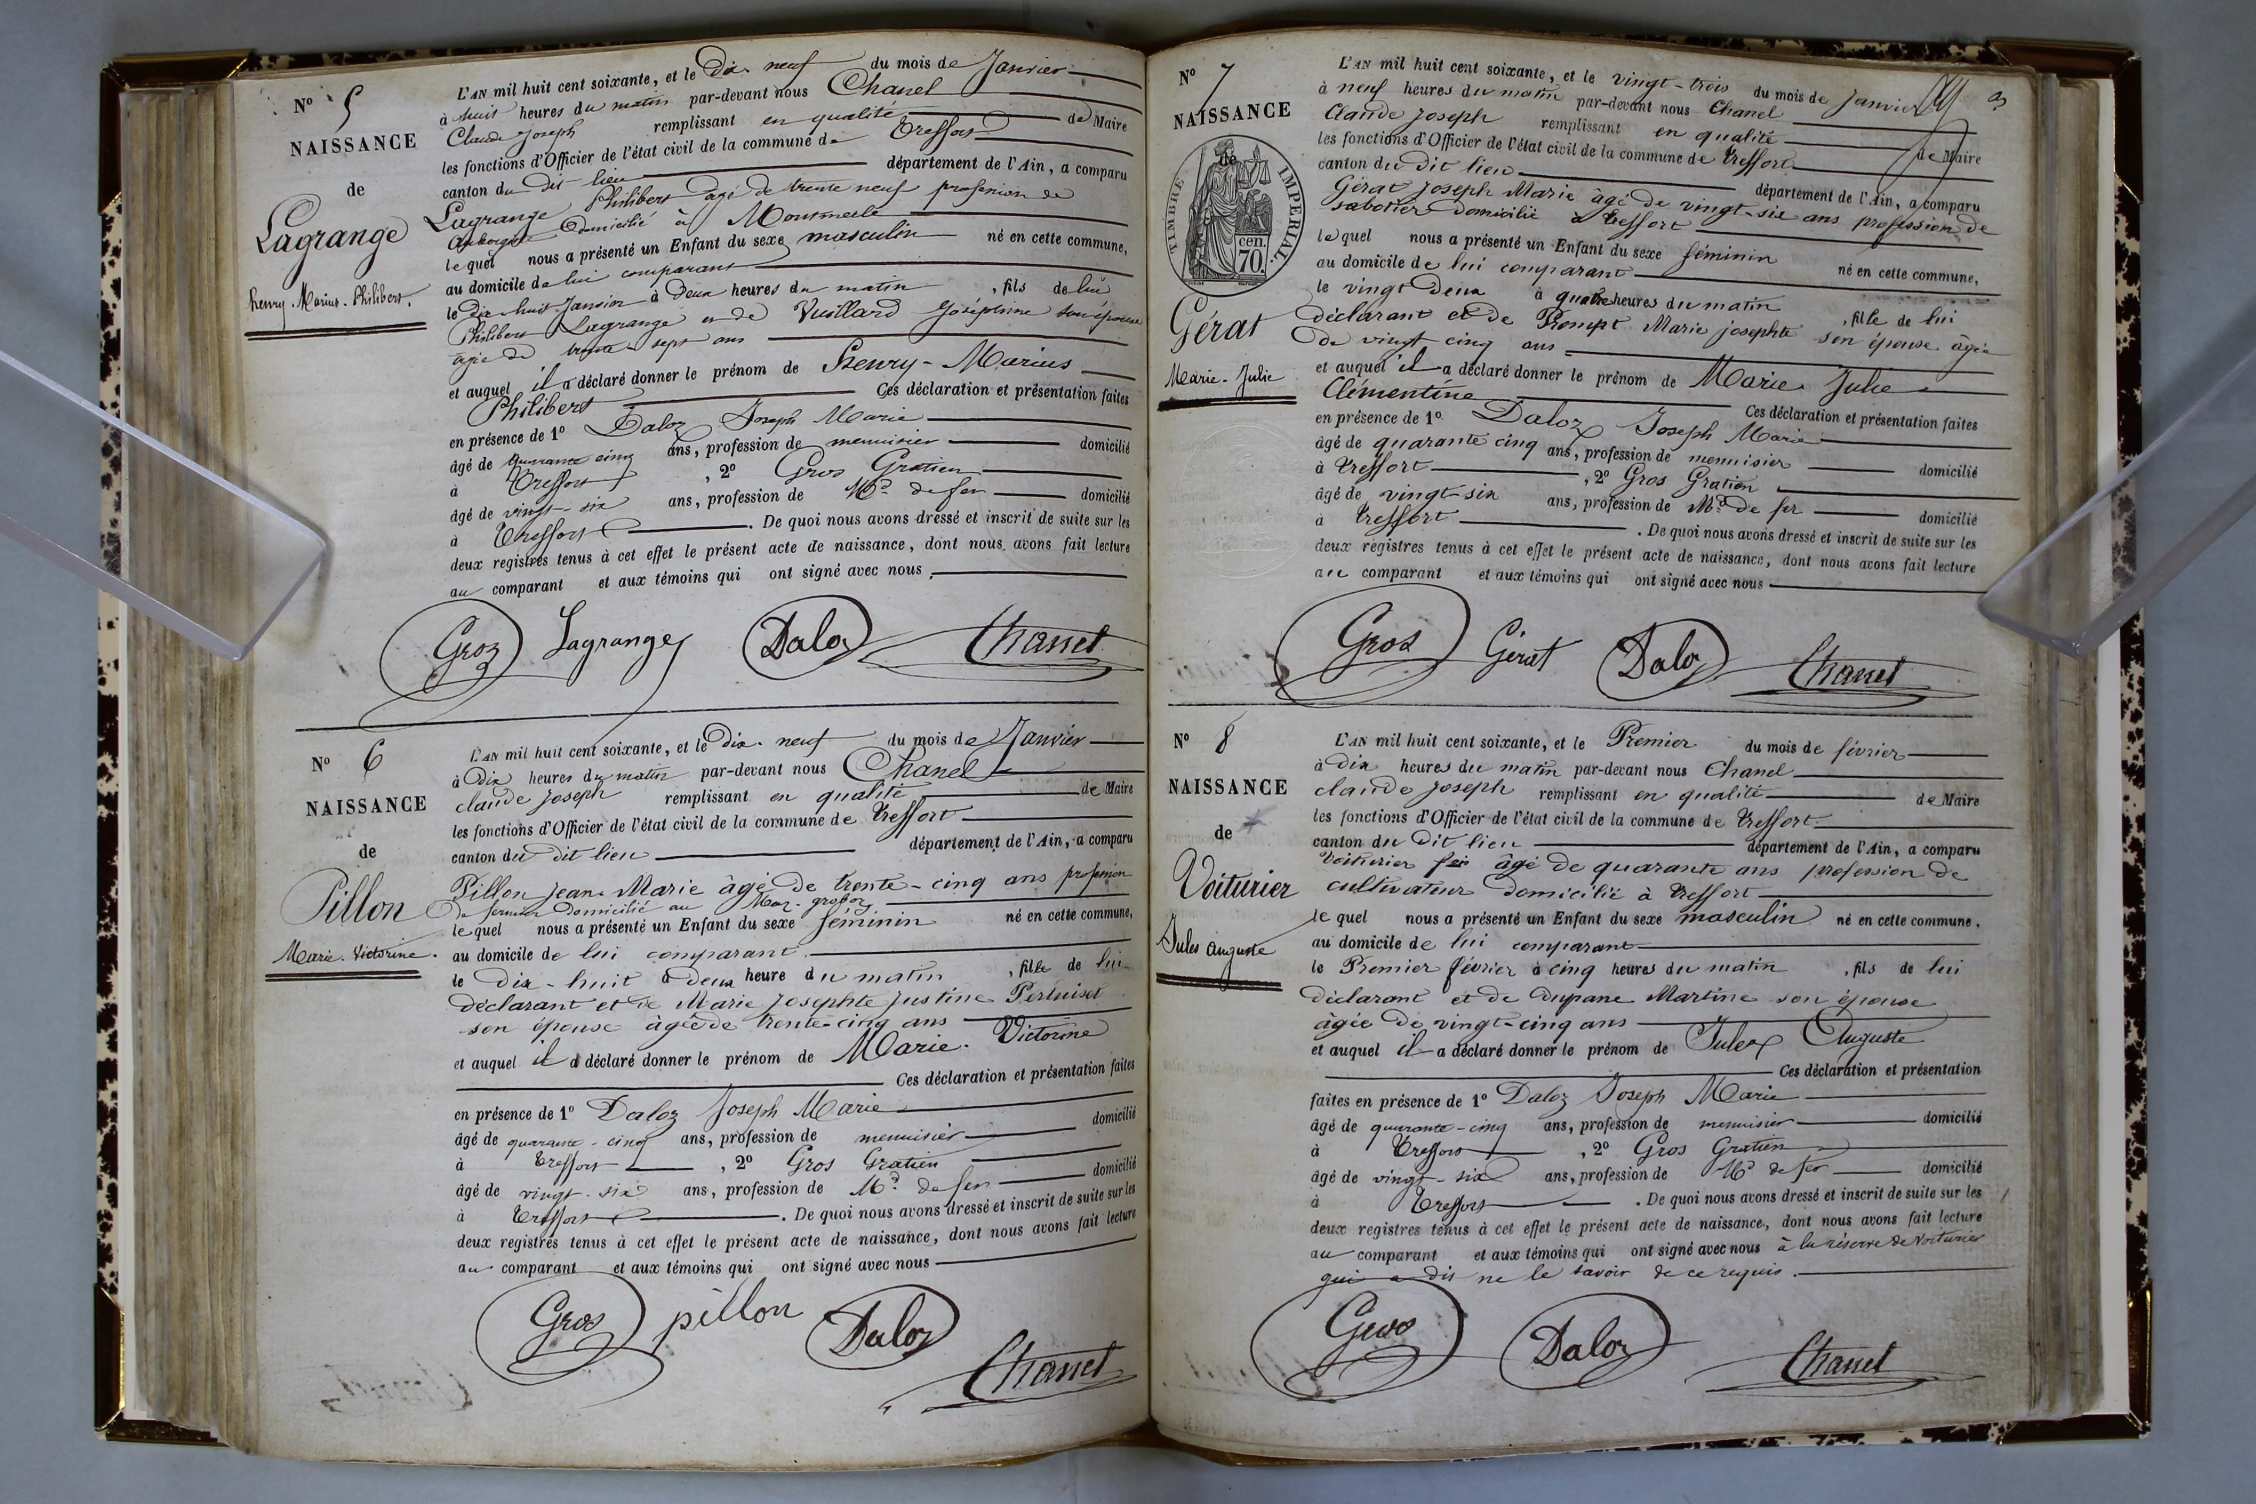 N° 5
NAISSANCE
de
Lagrange
henry. Marius. Philibert.
L'AN mil huit cent soixante, et le Dix neuf du mois de Janvier
à huit heures du matin par-devant nous Chanel
Claude Joseph remplissant en qualité de Maire
les fonctions d'Officier de l'état civil de la commune de Treffort
canton du dit lieu département de l'Ain, a comparu
Lagrange Philibert âgé de trente neuf profession de
Aubergiste domicilié à Montmerle
lequel nous a présenté un Enfant du sexe masculin né en cette commune,
au domicile de lui comparant
le dix huit Janvier à Deux heures du matin, fils de lui
Philibert Lagrange et de Vuillard Joséphine son épouse
âgée de trente-sept ans
et auquel il a déclaré donner le prénom de Henry-Marius
Philibert Ces déclaration et présentation faites
en présence de 1° Daloz Joseph Marie
âgé de quarante cinq ans, profession de menuisier domicilié
à Treffort, 2° Gros Gratien
âgé de vingt-six ans, profession de Md de fer domicilié
à Treffort. De quoi nous avons dressé et inscrit de suite sur les
deux registres tenus à cet effet le présent acte de naissance, dont nous avons fait lecture
au comparant et aux témoins qui ont signé avec nous.
Gros Lagrange Daloz Chanel
N° 6
NAISSANCE
de
Pillon
Marie. Victorine.
L'AN mil huit cent soixante, et le dix. neuf du mois de Janvier
à Dix heures du matin par-devant nous Chanel
claude Joseph remplissant en qualité de Maire
les fonctions d'Officier de l'état civil de la commune de Treffort
canton du dit lieu département de l'Ain, a comparu
Pillon Jean Marie âgé de trente-cinq ans profession
de fermier domicilié au
lequel nous a présenté un Enfant du sexe féminin né en cette commune,
au domicile de lui comparant
le dix-huit à deux heure du matin, fille de lui
déclarant et de Marie Josephte Justine Pertuiset
son épouse âgée de trente-cinq ans
et auquel il a déclaré donner le prénom de Marie. Victorine
Ces déclaration et présentation faites
en présence de 1° Daloz Joseph Marie
âgé de quarante-cinq ans, profession de menuisier domicilié
à Treffort, 2° Gros Gratien
âgé de vingt-six ans, profession de Md de fer domicilié
à Treffort. De quoi nous avons dressé et inscrit de suite sur les
deux registres tenus à cet effet le présent acte de naissance, dont nous avons fait lecture
au comparant et aux témoins qui ont signé avec nous
Gros pillon Daloz
Chanel
3
N° 7
NAISSANCE
de
TIMBRE IMPERIAL.
cen.
70.
Gérat
Marie-Julie
L'AN mil huit cent soixante, et le vingt-trois du mois de Janvier
à neuf heures du matin par-devant nous Chanel
Claude Joseph remplissant en qualité de Maire
les fonctions d'Officier de l'état civil de la commune de Treffort
canton du dit lieu département de l'Ain, a comparu
Gérat Joseph Marie âgé de vingt-six ans profession de
sabotier domicilié à Treffort
lequel nous a présenté un Enfant du sexe féminin né en cette commune,
au domicile de lui comparant
le vingt deux à quatre heures du matin, fille de lui
déclarant et de Prompt Marie josephte son épouse âgée
de vingt cinq ans
et auquel il a déclaré donner le prénom de Marie Julie
Clémentine Ces déclaration et présentation faites
en présence de 1° Daloz Joseph Marie
âgé de quarante cinq ans, profession de menuisier domicilié
à Treffort, 2° Gros Gratien
âgé de vingt-six ans, profession de Md de fer domicilié
à Treffort. De quoi nous avons dressé et inscrit de suite sur les
deux registres tenus à cet effet le présent acte de naissance, dont nous avons fait lecture
au comparant et aux témoins qui ont signé avec nous
Gros Gérat Daloz Chanel
N° 8
NAISSANCE
de
Voiturier
Jules Auguste
L'AN mil huit cent soixante, et le Premier du mois de février
à dix heures du matin par-devant nous Chanel
claude Joseph remplissant en qualité de Maire
les fonctions d'Officier de l'état civil de la commune de Treffort
canton du dit lieu département de l'Ain, a comparu
Voiturier âgé de quarante ans profession de
cultivateur domicilié à Treffort
lequel nous a présenté un Enfant du sexe masculin né en cette commune,
au domicile de lui comparant
le Premier février à cinq heures du matin, fils de lui
déclarant et de Dupane Martine son épouse
âgée de vingt-cinq ans
et auquel il a déclaré donner le prénom de Jules Auguste
Ces déclaration et présentation
faites en présence de 1° Daloz Joseph Marie
âgé de quarante-cinq ans, profession de menuisier domicilié
à Treffort, 2° Gros Gratien
âgé de vingt-six ans, profession de Md de fer domicilié
à Treffort. De quoi nous avons dressé et inscrit de suite sur les
deux registres tenus à cet effet le présent acte de naissance, dont nous avons fait lecture
au comparant et aux témoins qui ont signé avec nous à la réserve de Voiturier
qui a dit ne le savoir de ce requis.
Gros Daloz Chanel